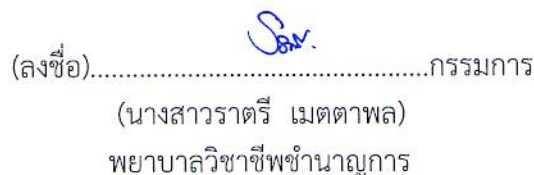 (ลงชื่อ)................................................กรรมการ
(นางสาวราตรี เมตตาพล)
พยาบาลวิชาชีพชำนาญการ